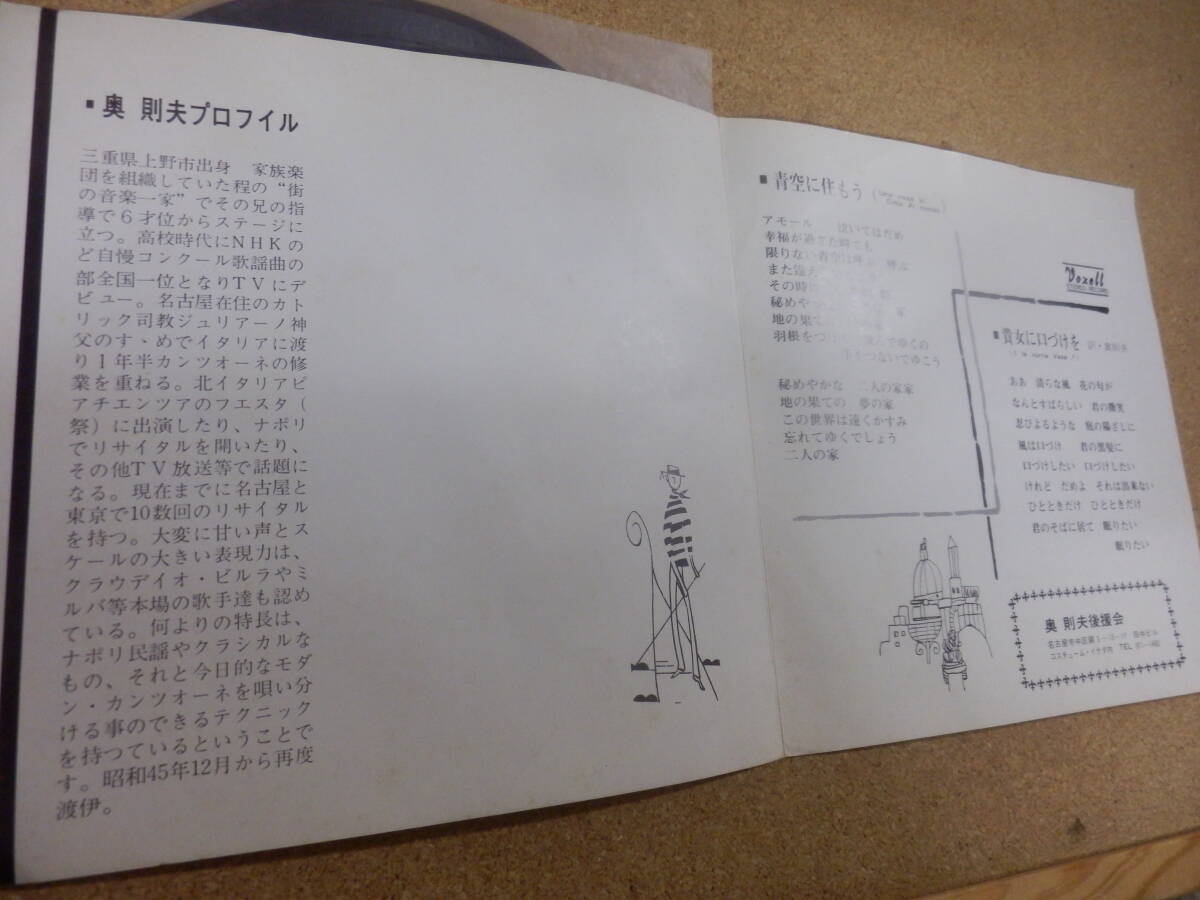 ▪ 奥 則夫プロフイル
三重県上野市出身　家族楽
団を組織していた程の“街
の音楽一家”でその兄の指
導で6才位からステージに
立つ。高校時代にNHKの
ど自慢コンクール歌謡曲の
部全国一位となりTVにデ
ビュー。名古屋在住のカト
リック司教ジュリアーノ神
父のすゝめでイタリアに渡
り1年半カンツオーネの修
業を重ねる。北イタリアピ
アチエンツアのフエスタ（
祭）に出演したり、ナポリ
でリサイタルを開いたり、
その他TV放送等で話題に
なる。現在までに名古屋と
東京で10数回のリサイタル
を持つ。大変に甘い声とス
ケールの大きい表現力は、
クラウデイオ・ビルラやミ
ルバ等本場の歌手達も認め
ている。何よりの特長は、
ナポリ民謡やクラシカルな
もの、それと今日的なモダ
ン・カンツオーネを唄い分
ける事のできるテクニック
を持つているということで
す。昭和45年12月から再度
渡伊。
▪ 青空に住もう
アモール　泣いてはだめ
幸福が過ぎた時でも
限りない青空は呼ぶ　呼ぶ
また
その時
秘めや　家
地の果て
羽根をつけて　んでゆくの
手をつないでゆこう
秘めやかな　二人の家家
地の果ての　夢の家
この世界は遠くかすみ
忘れてゆくでしょう
二人の家
Voxell
STEREO RECORD
▪ 貴女に口づけを　訳・奥則夫
ああ　清らな風　花の匂が
なんとすばらしい　君の微笑
忍びよるような　庭の陽ざしに
風は口づけ　君の黒髪に
口づけしたい　口づけしたい
けれど　だめよ　それは出来ない
ひとときだけ　ひとときだけ
君のそばに居て　眠りたい
眠りたい
奥 則夫後援会
名古屋市中区　田中ビル
コスチューム・イケダ内　TEL